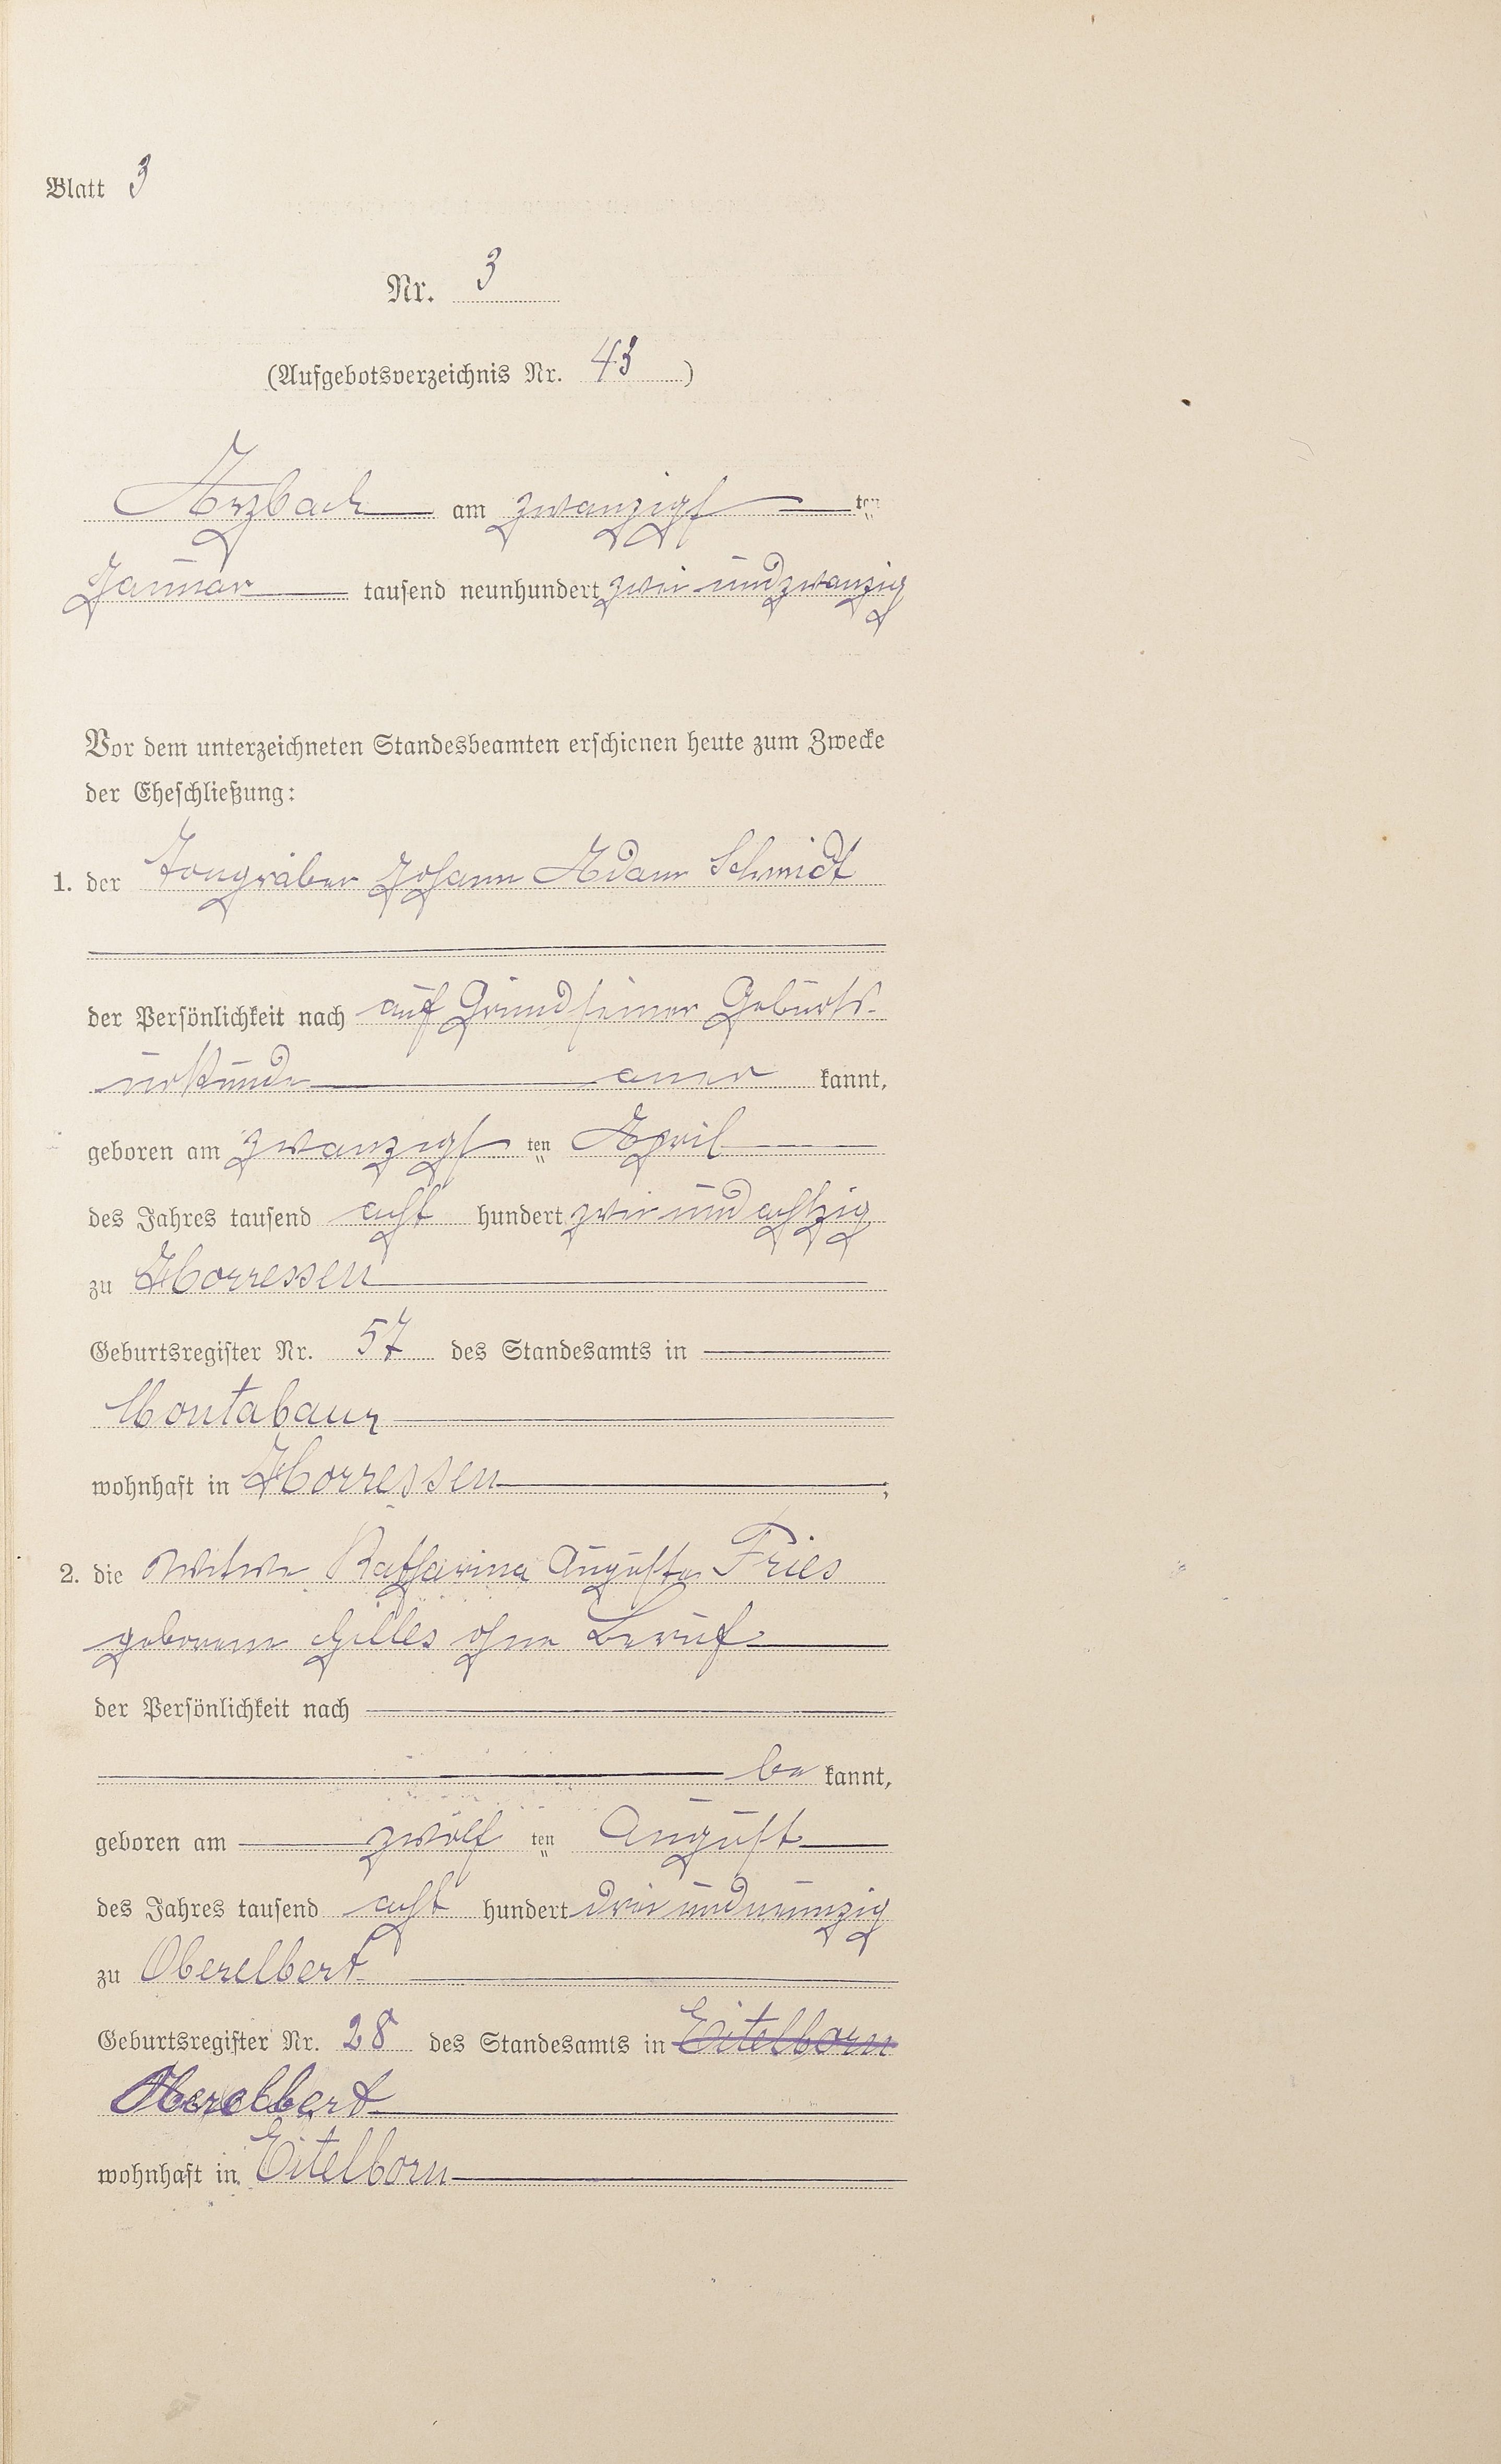 Blatt 3
Nr. 3
(Aufgebotsverzeichnis Nr. 43)
Arzbach am zwanzigsten
Januar tausend neunhundert zwei und zwanzig
Vor dem unterzeichneten Standesbeamten erschienen heute zum Zwecke
der Eheschließung:
1. der Tongräber Johann Adam Schmidt
der Persönlichkeit nach auf Grund seiner Geburts-
urkunde aner kannt,
geboren am zwanzigsten April
des Jahres tausend acht hundert zwei und achtzig
zu Horressen
Geburtsregister Nr. 57 des Standesamts in
Montabaur
wohnhaft in Horressen;
2. die Witwe Katharina Augusta Fries
geborene Gilles ohne Beruf
der Persönlichkeit nach
be kannt,
geboren am zwölften August
des Jahres tausend acht hundert drei und neunzig
zu Oberelbert
Geburtsregister Nr. 28 des Standesamts in Eitelborn
Oberelbert
wohnhaft in Eitelborn